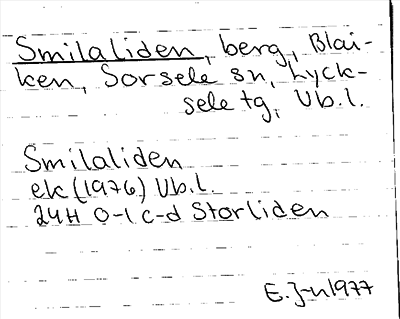 Smilaliden, berg, Blai-
ken, Sorsele sn, Lyck-
sele tg, Vb.l.
Smilaliden
ek (1976) Vb.l.
24H 0-1 c-d Storliden
E.J-n 1977